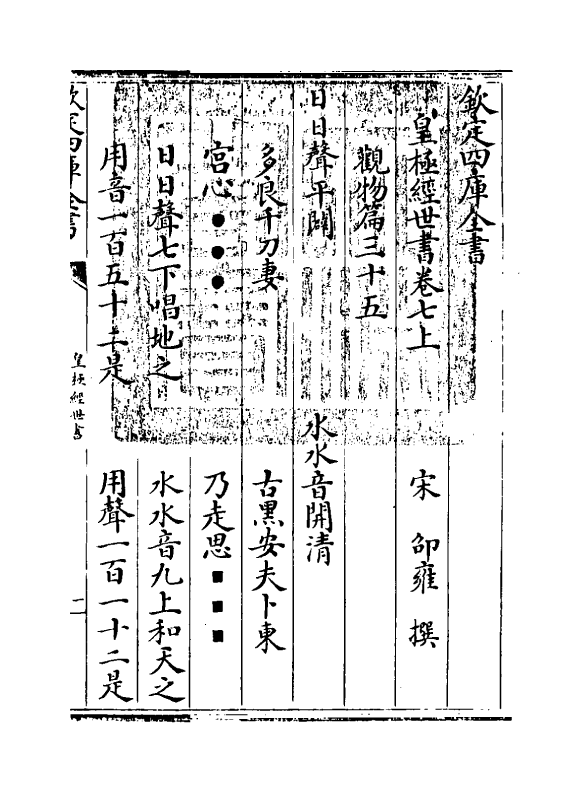 欽定四庫全書
皇極經世書卷七上
宋 邵雍 撰
觀物篇三十五
日日聲平闢 水水音開清
多良千刀妻 古黑安夫卜東
宫心●●● 乃走思■■■
日日聲七下唱地之 水水音九上和天之
用音一百五十二是 用聲一百一十二是
欽定四庫全書
皇極經世書